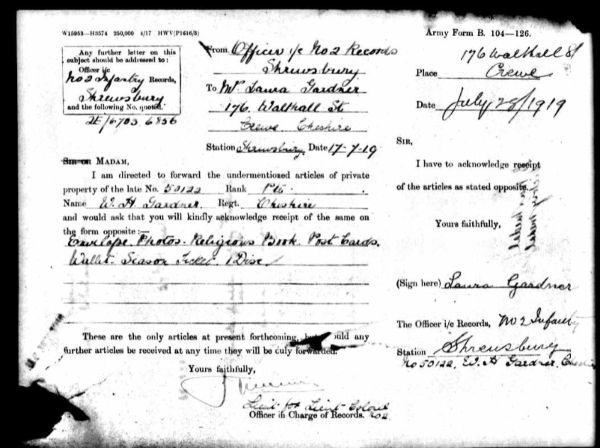 W15953—H3574 250,000 4/17 HWV(P1516/3)
Any further letter on this
subject should be addressed to:
Officer i/c
No 2 Infantry Records,
Shrewsbury
and the following No. quoted.
6856
From Officer i/c No 2 Records
Shrewsbury
To Mrs Laura Gardner
176, Walthall St
Crewe Cheshire
Station Shrewsbury Date 17-7-19
Sir or Madam,
I am directed to forward the undermentioned articles of private
property of the late No. 50122 Rank Pte.
Name W. H Gardner Regt. Cheshire
and would ask that you will kindly acknowledge receipt of the same on
the form opposite:—
Envelope. Photos. Religious Book. Post Cards.
Wallet. Season Ticket. 1 Disc
These are the only articles at present forthcoming, should any
further articles be received at any time they will be duly forwarded.
Yours faithfully,
Lieut for Lieut Colonel
Officer in Charge of Records. No 2
Army Form B. 104—126.
176 Walthall St
Place Crewe
Date July 28/1919
Sir,
I have to acknowledge receipt
of the articles as stated opposite.
Yours faithfully,
(Sign here) Laura Gardner
The Officer i/c Records, No 2 Infantry
Station Shrewsbury
No 50122, W. H Gardner, Cheshire